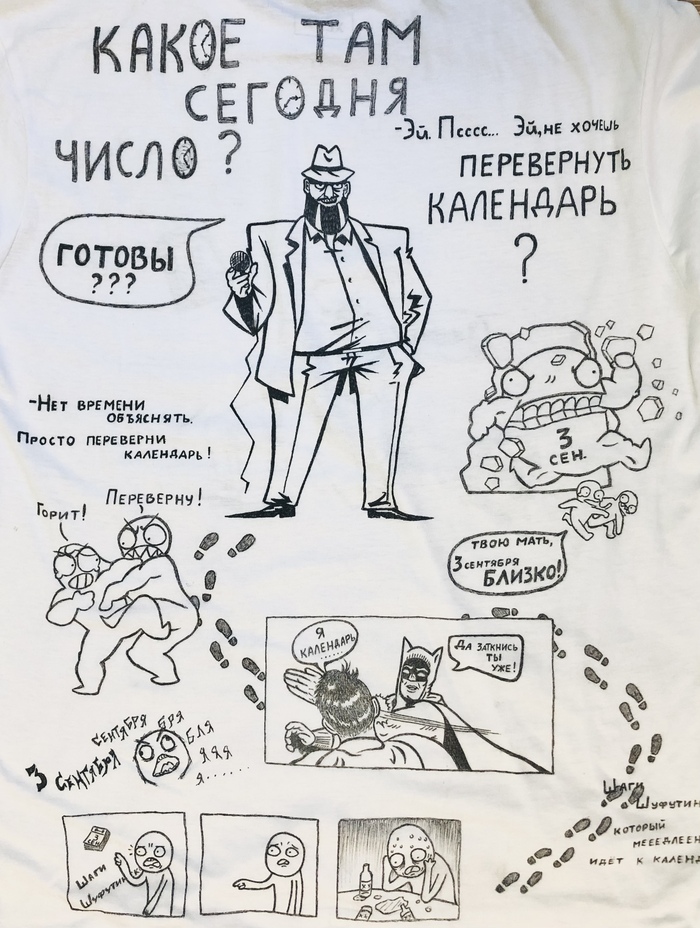 КАКОЕ ТАМ
СЕГОДНЯ
ЧИСЛО?
-Эй. Псссс... Эй, не хочешь
ПЕРЕВЕРНУТЬ
КАЛЕНДАРЬ
?
ГОТОВЫ
???
-Нет времени
объяснять.
Просто переверни
календарь!
3
СЕН.
Горит!
Переверну!
ТВОЮ МАТЬ,
3 СЕНТЯБРЯ
БЛИЗКО!
Я
КАЛЕНДАРЬ
......
ДА ЗАТКНИСЬ
ТЫ
УЖЕ!
3 СЕНТЯБРЯ
СЕНТЯБРЯ
БРЯ
БЛЯ
ЯЯЯ
Я.......
Шаги
Шуфутин
который
мееедлеен
идет к календ
3
СЕН
Шаги
Шуфутин